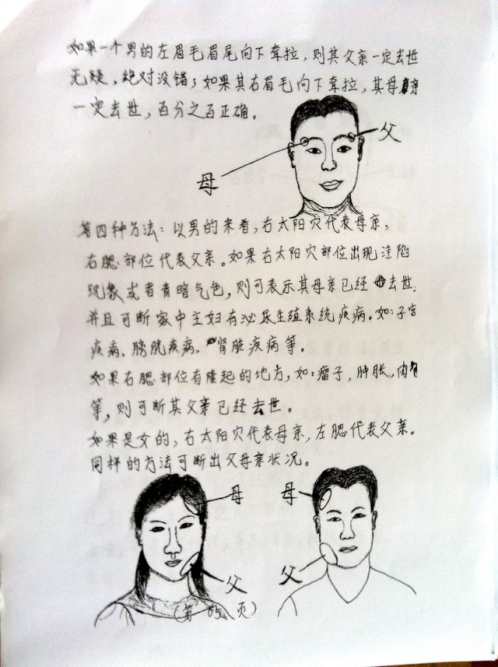 如果一个男的左眉毛眉尾向下牵拉，则其父亲一定去世
无疑，绝对没错；如果其右眉毛向下牵拉，其母亲
一定去世，百分之百正确。
父
母
第四种方法：以男的来看，右太阳穴代表母亲，
右腮部位代表父亲。如果右太阳穴部位出现洼陷
现象或者青暗气色，则可表示其母亲已经去世，
并且可断家中主妇有泌尿生殖系统疾病。如：子宫
疾病、膀胱疾病、肾脏疾病等。
如果右腮部位有隆起的地方，如：瘤子，肿胀，肉
等，则可断其父亲已经去世。
如果是女的，右太阳穴代表母亲，左腮代表父亲。
同样的方法可断出父母亲状况。
母 母
父 父
(第 页)